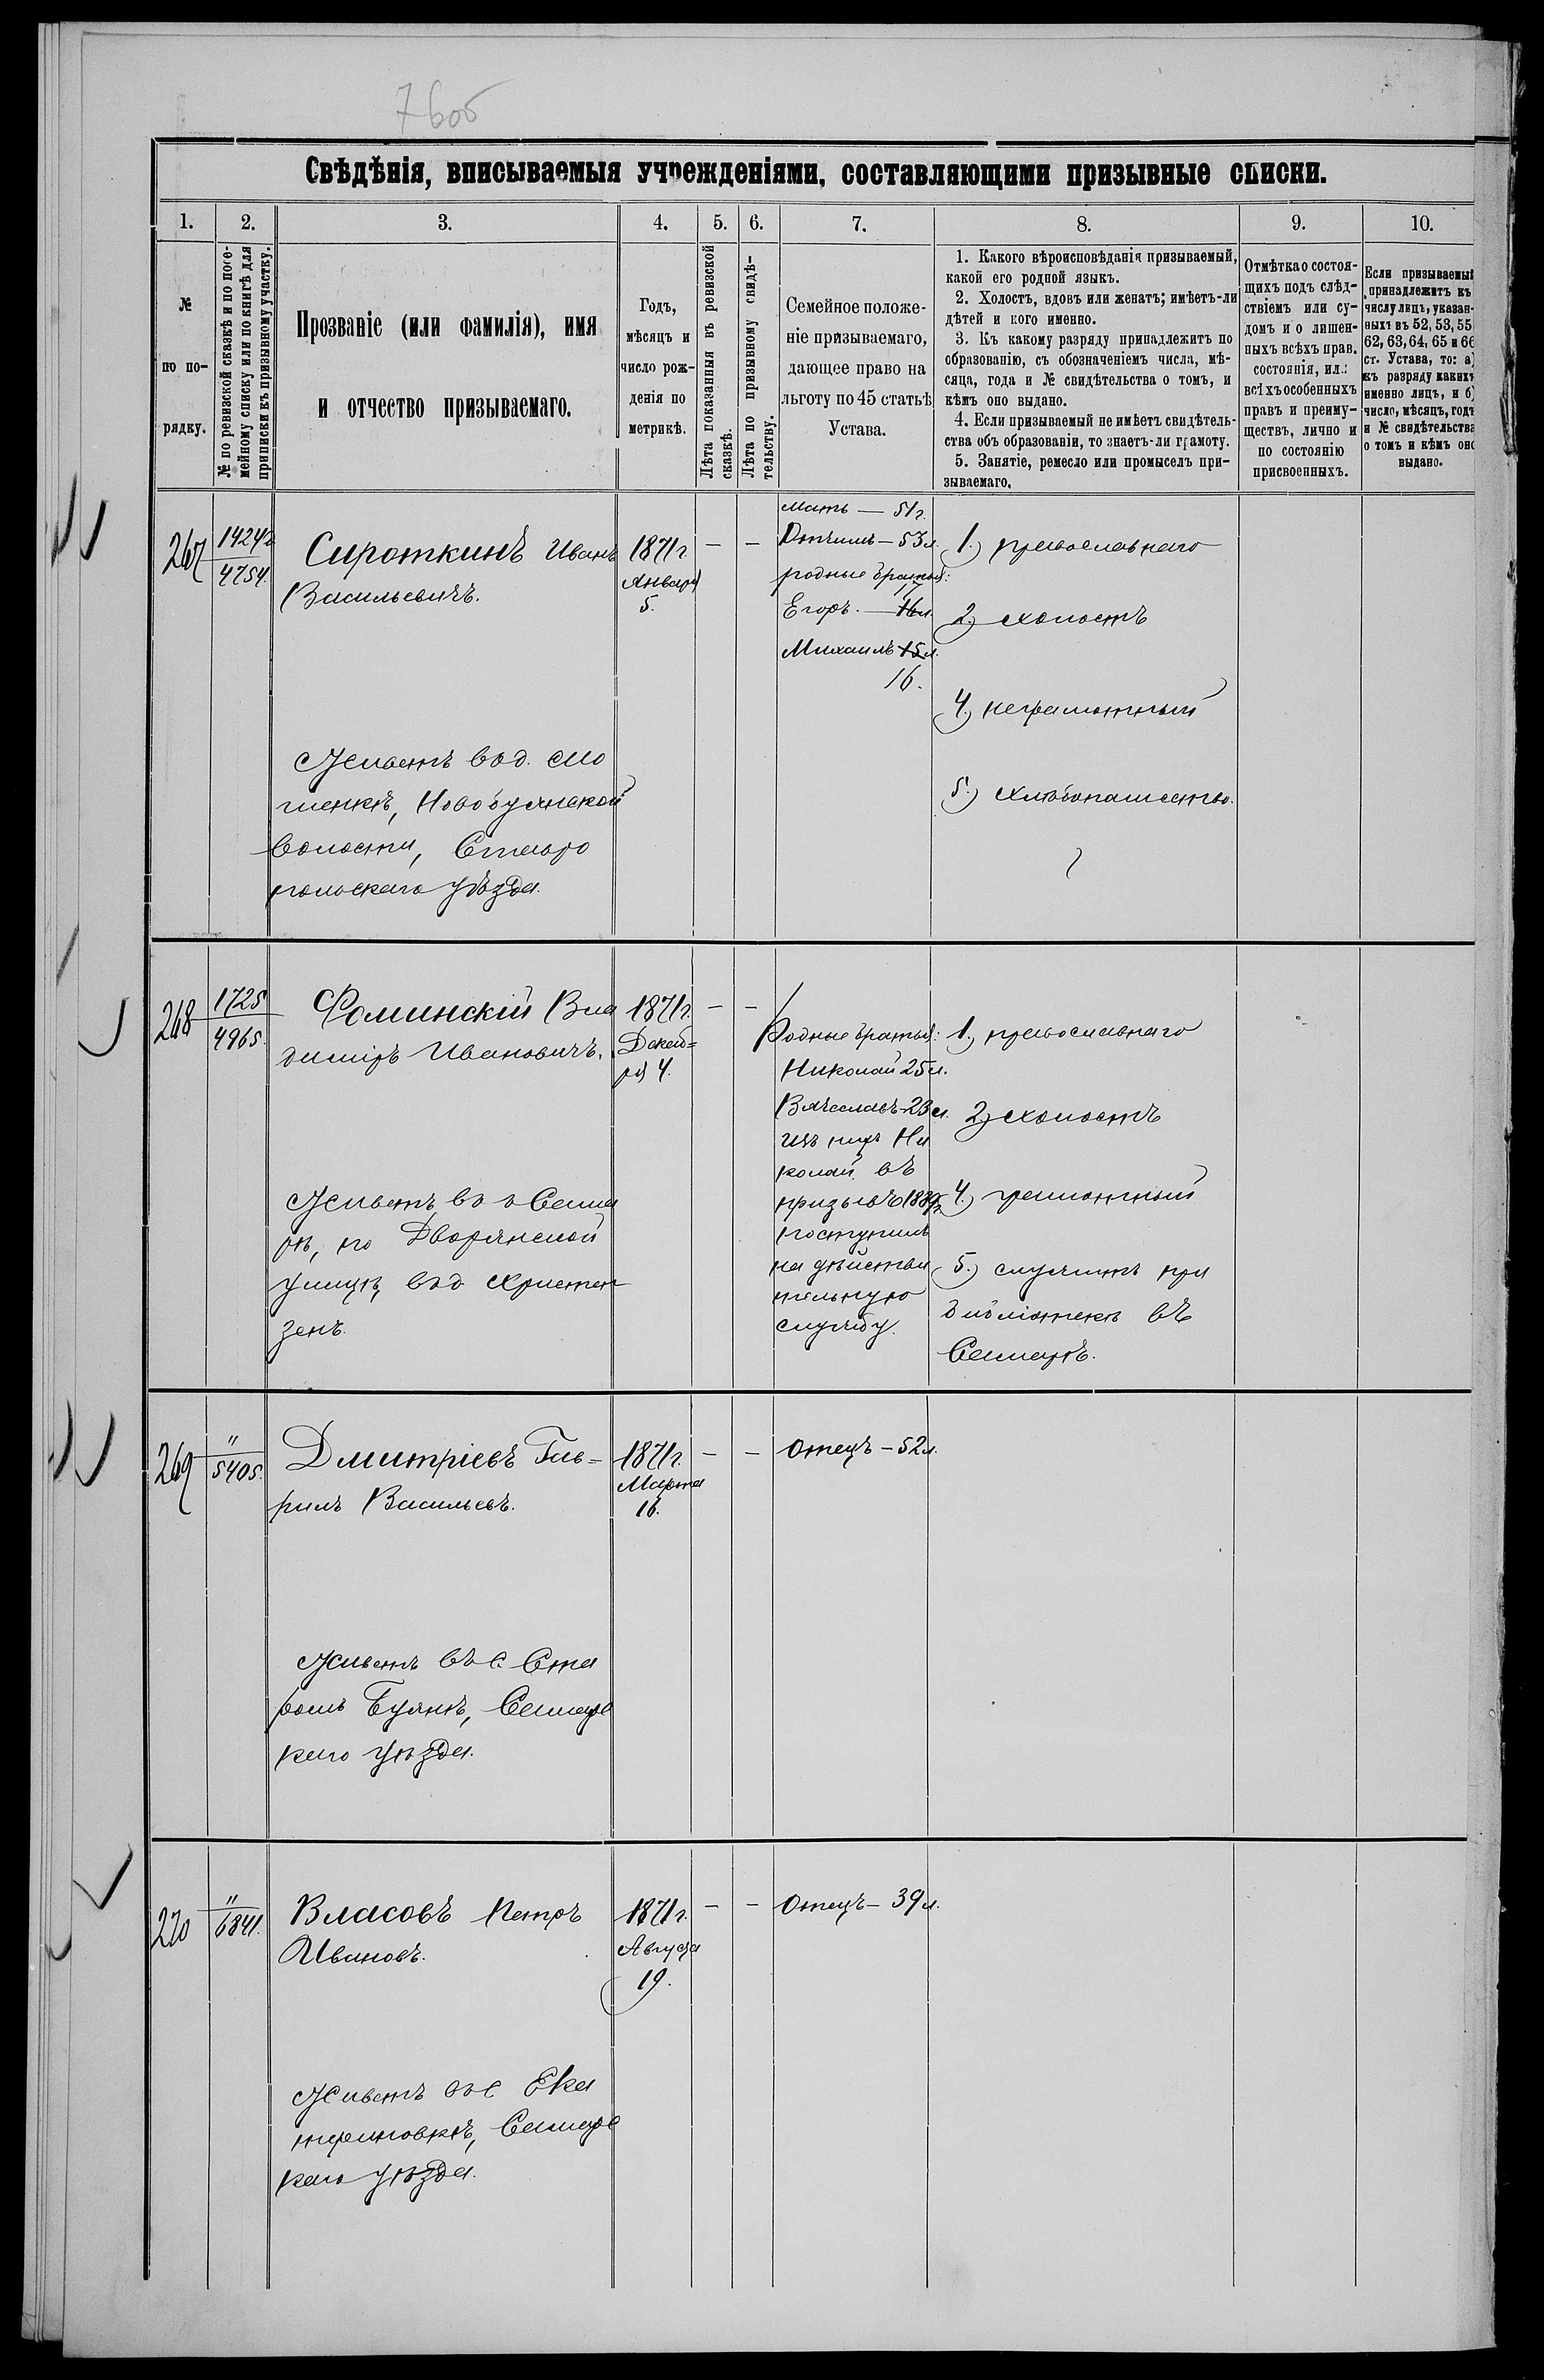 7605
Свѣдѣнія, вписываемыя учрежденіями, составляющими призывные списки.
1. 2. 3. 4. 5. 6. 7. 8. 9. 10.
№
по по-
рядку.
№ по ревизской сказкѣ и по посе-
мейному списку или по книгѣ для
приписки къ призывному участку.
Прозваніе (или фамилія), имя
и отчество призываемаго.
Годъ,
мѣсяцъ и
число рож-
денія по
метрикѣ.
Лѣта показанныя въ ревизской
сказкѣ.
Лѣта по призывному свидѣ-
тельству.
Семейное положе-
ніе призываемаго,
дающее право на
льготу по 45 статьѣ
Устава.
1. Какого вѣроисповѣданія призываемый,
какой его родной языкъ.
2. Холостъ, вдовъ или женатъ; имѣетъ-ли
дѣтей и кого именно.
3. Къ какому разряду принадлежитъ по
образованію, съ обозначеніемъ числа, мѣ-
сяца, года и № свидѣтельства о томъ, и
кѣмъ оно выдано.
4. Если призываемый не имѣетъ свидѣтель-
ства объ образованіи, то знаетъ-ли грамоту.
5. Занятіе, ремесло или промыселъ при-
зываемаго.
Отмѣтка о состоя-
щихъ подъ слѣд-
ствіемъ или су-
домъ и о лишен-
ныхъ всѣхъ прав.
состоянія, ил.:
всѣхъ особенныхъ
правъ и преиму-
ществъ, лично и
по состоянію
присвоенныхъ.
Если призываемый
принадлежитъ къ
числу лицъ, указан-
ныхъ въ 52, 53, 55
62, 63, 64, 65 и 66
ст. Устава, то: а)
къ разряду какихъ
именно лицъ, и б)
число, мѣсяцъ, годъ
и № свидѣтельства
о томъ и кѣмъ оно
выдано.
267
1424
4754.
Сироткинъ Иванъ
Васильевичъ.
Живетъ въ д.
Новобуянской
волости, Ставро
польскаго уѣзда.
1871 г
Января
5.
— —
Мать — 51 г.
Отчимъ — 53 л.
родные братья:
17
Егоръ. — 16 л.
Михаилъ 15 л.
16.
1.) православнаго
2.) холостъ
4.) неграмотный
5.) хлѣбопашество.
268
1725
4965.
Фоминскій Вла
диміръ Ивановичъ.
Живетъ въ г Сама
рѣ, по Дворянской
улицѣ, въ д Христен
зенъ.
1871 г.
Декаб=
ря 4.
— —
Родные братья:
Николай 25 л.
Вячеславъ – 23 л.
изъ нихъ Ни
колай въ
призывъ
поступилъ
на дѣйстви
тельную
службу.
1.) православнаго
2.) холостъ
4.) грамотный
5.) служитъ при
библіотекѣ въ
Самарѣ.
269
"
5405.
Дмитріевъ Гав=
рилъ Васильевъ.
Живетъ въ с. Ста
ромъ Буянѣ, Самарс
каго уѣзда.
1871 г.
Марта
16.
— —
Отецъ – 52 л.
270
"
6841.
Власовъ Петръ
Ивановъ.
Живетъ въ с Ека
териновкѣ, Самарс
каго уѣзда.
1871 г.
Августа
19.
— —
Отецъ – 39 л.